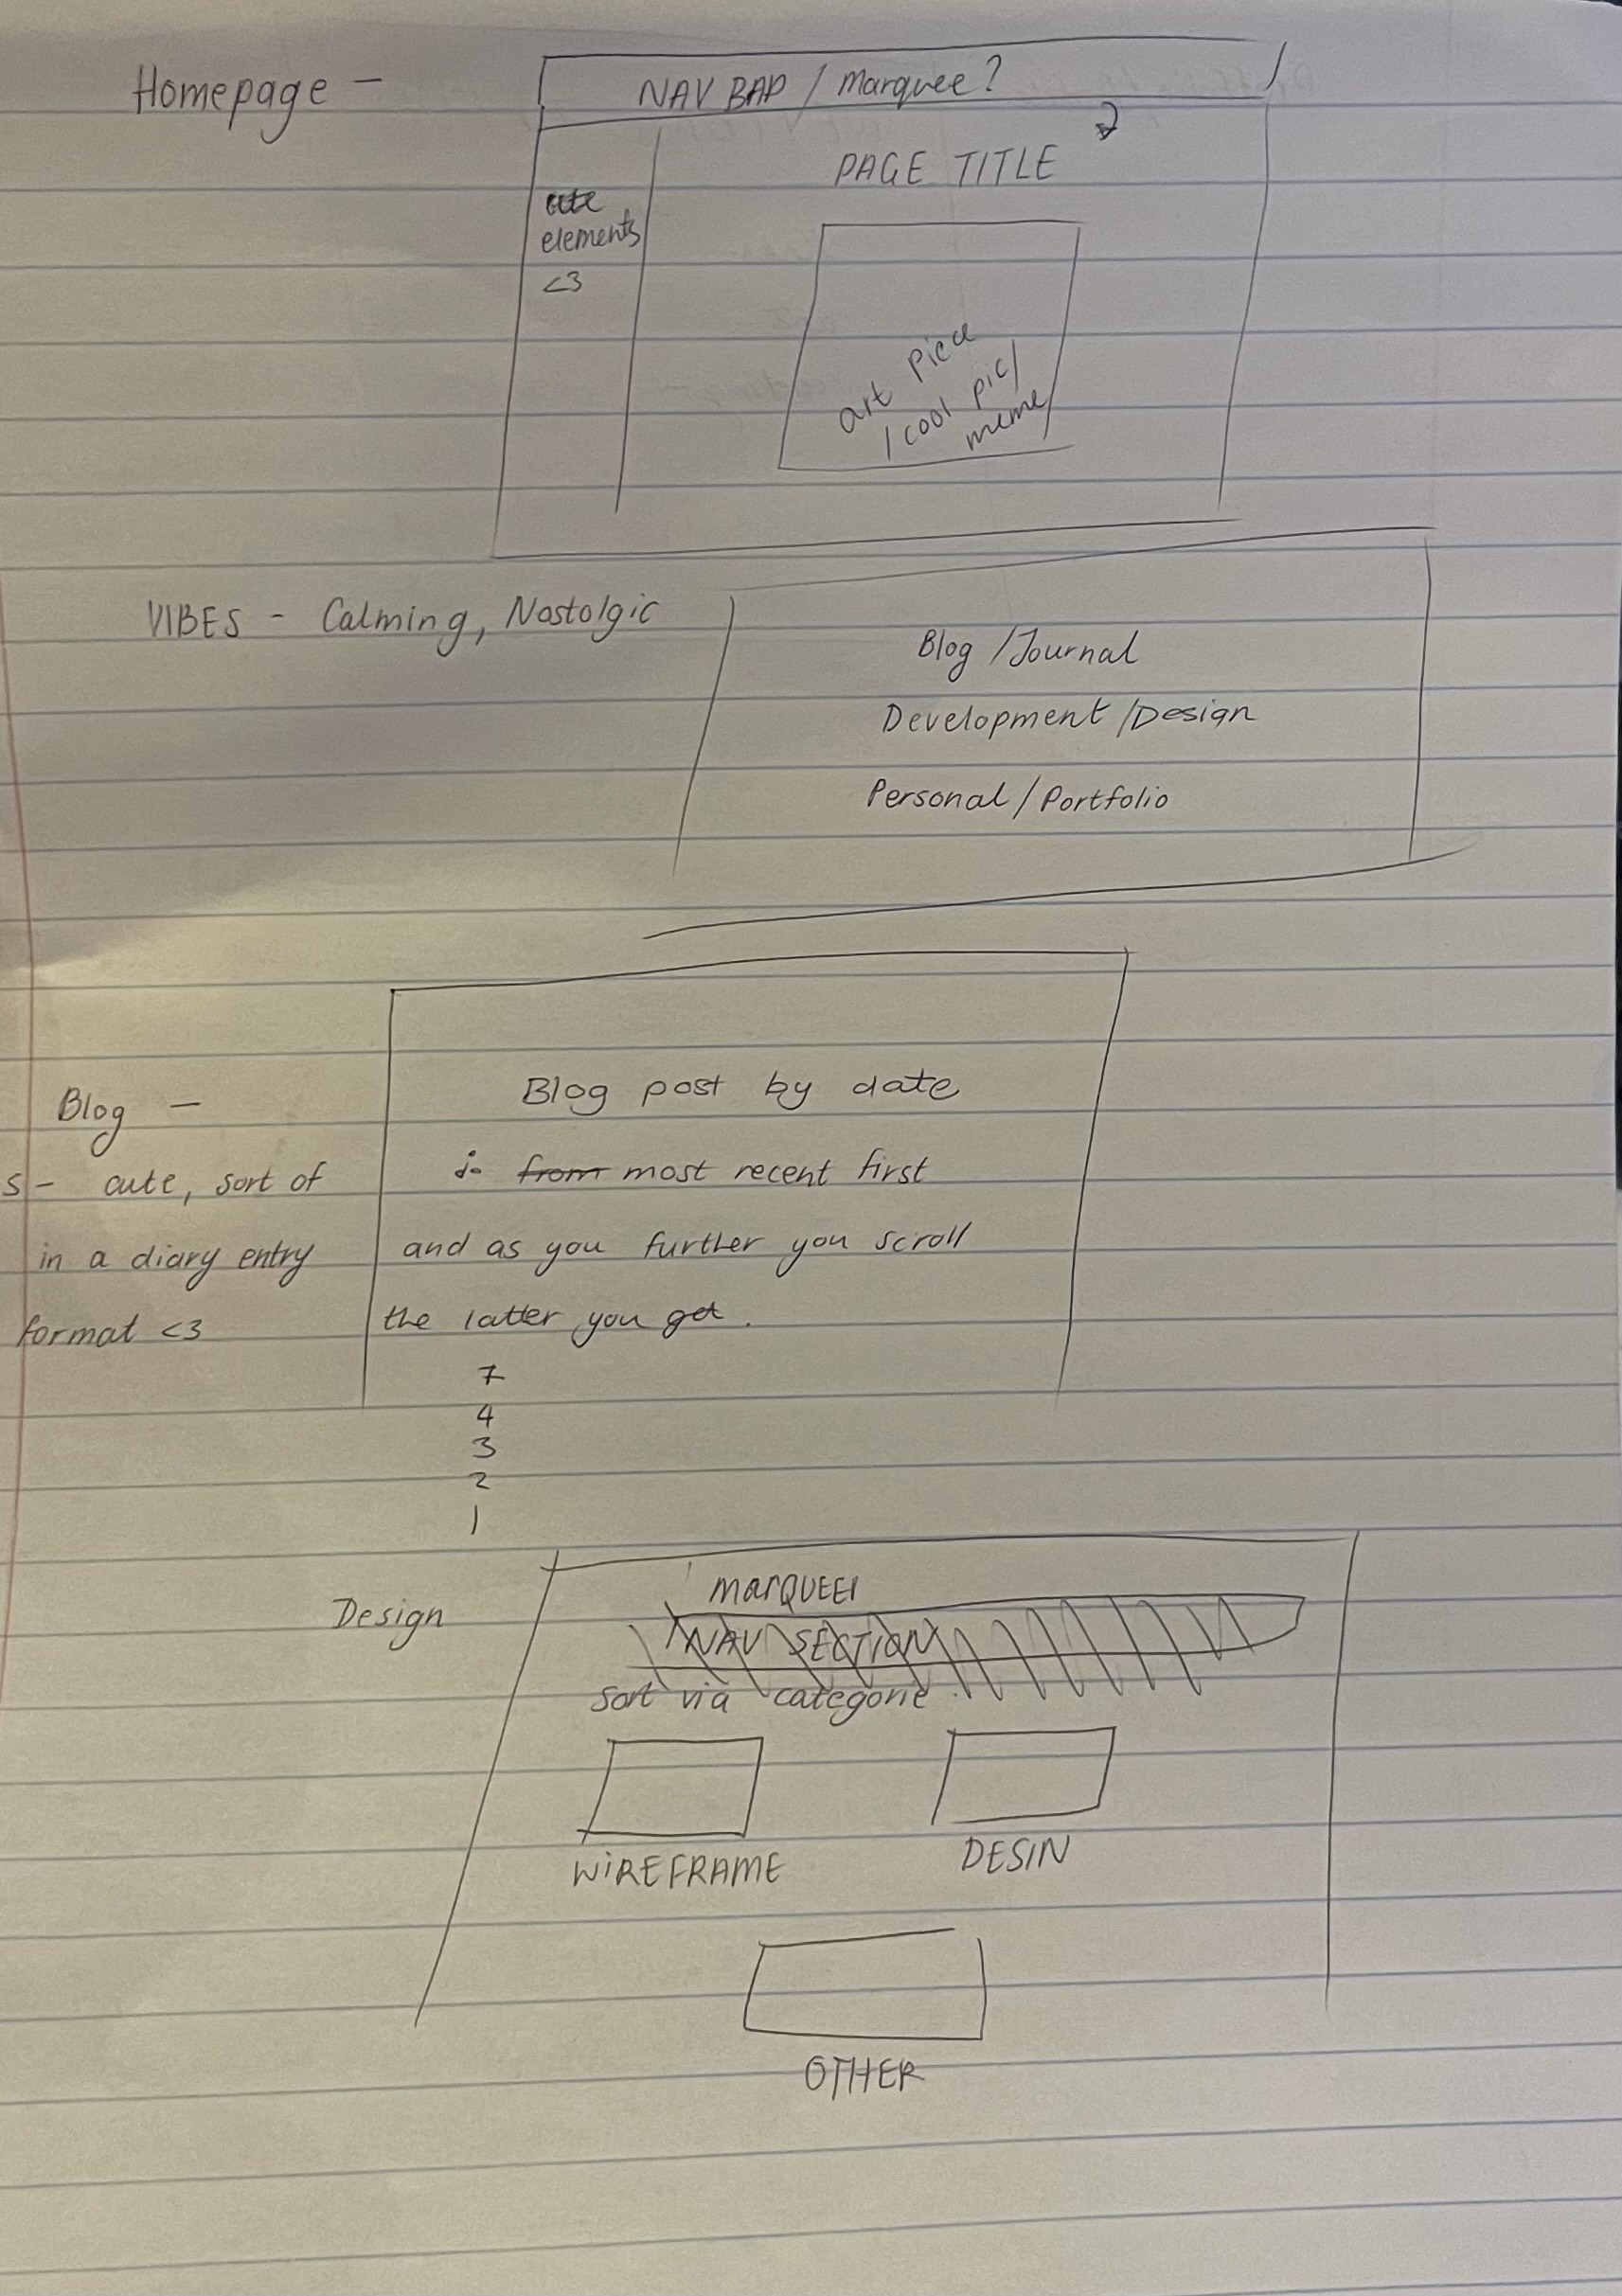 Homepage -
NAV BAR / Marquee?
PAGE TITLE
cute
elements
<3
art piece
/ cool pic/
meme
VIBES - Calming, Nostolgic
Blog / Journal
Development / Design
Personal / Portfolio
Blog -
s - cute, sort of
in a diary entry
format <3
Blog post by date
from most recent first
and as you further you scroll
the latter you get.
7
4
3
2
1
Design
MARQUEE
NAV SECTION
Sort via categorie
WIREFRAME
DESIN
OTHER